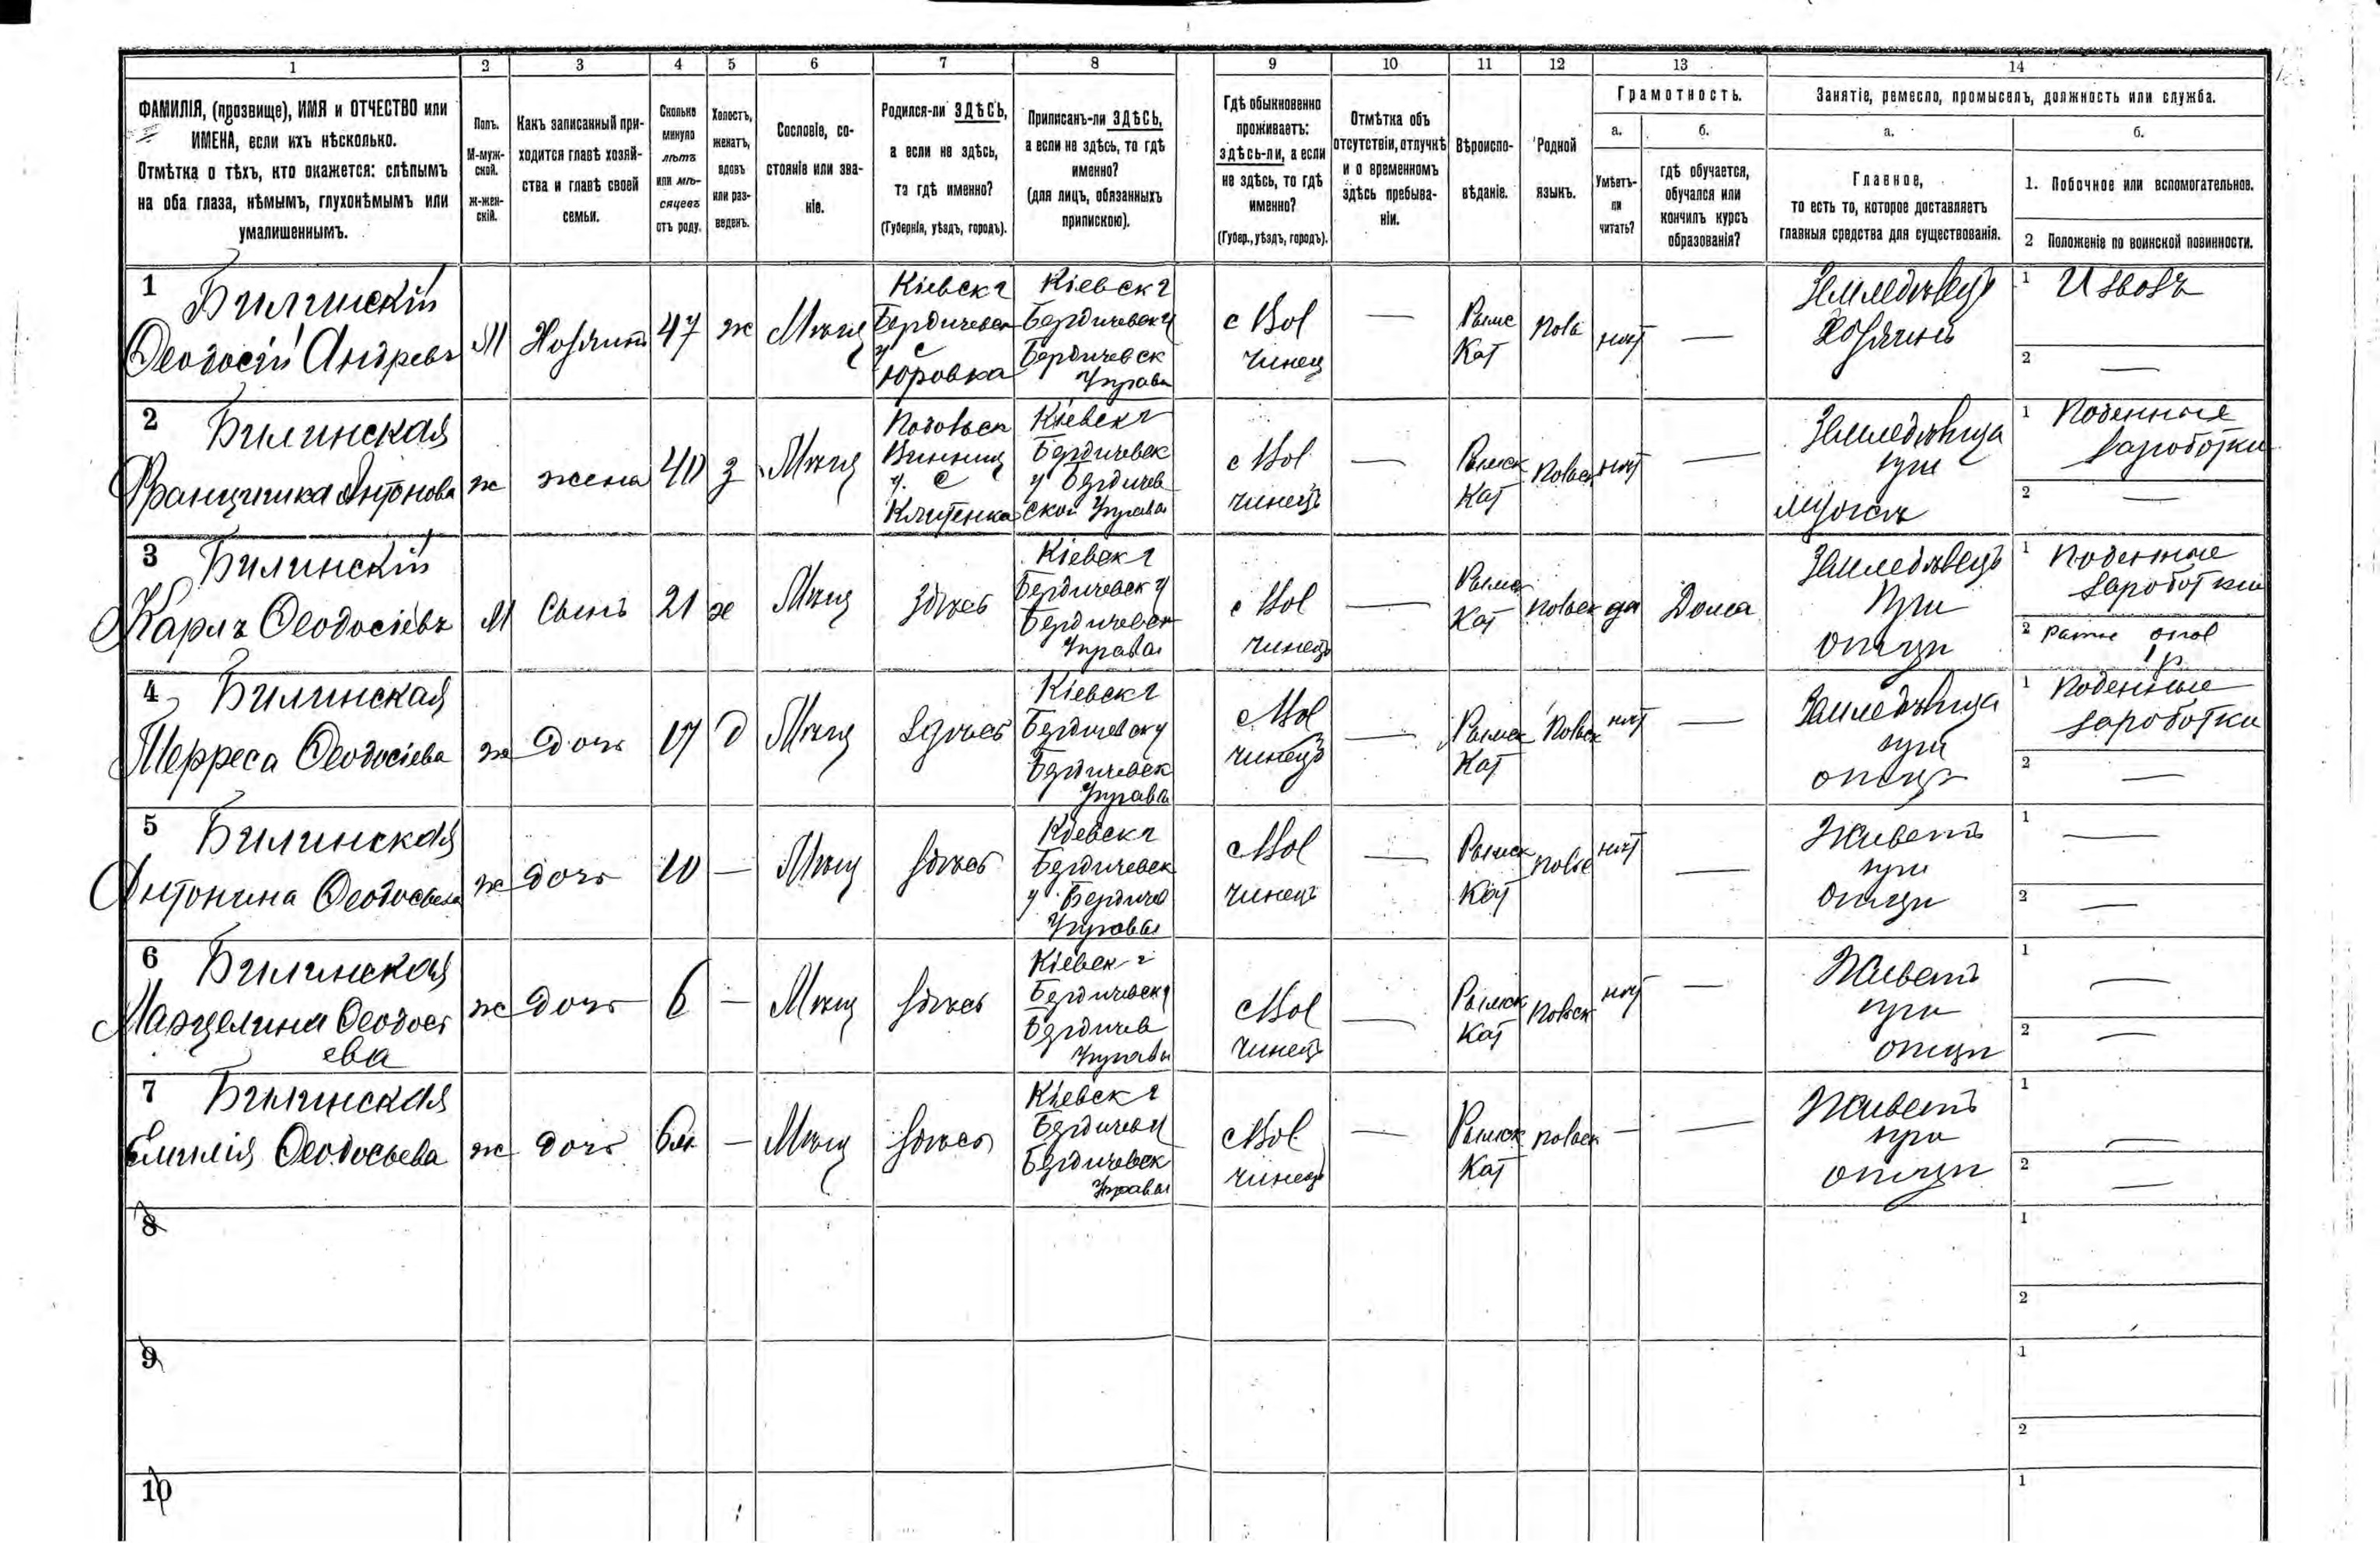 1 2 3 4 5 6 7 8 9 10 11 12 13 14
ФАМИЛІЯ, (прозвище), ИМЯ и ОТЧЕСТВО или
ИМЕНА, если ихъ нѣсколько.
Отмѣтка о тѣхъ, кто окажется: слѣпымъ
на оба глаза, нѣмымъ, глухонѣмымъ или
умалишеннымъ.
Полъ.
М-муж-
ской.
ж-жен-
скій.
Какъ записанный при-
ходится главѣ хозяй-
ства и главѣ своей
семьи.
Сколько
минуло
лѣтъ
или мѣ-
сяцевъ
отъ роду.
Холостъ,
женатъ,
вдовъ
или раз-
веденъ.
Сословіе, со-
стояніе или зва-
ніе.
Родился-ли ЗДѢСЬ,
а если не здѣсь,
то гдѣ именно?
(Губернія, уѣздъ, городъ).
Приписанъ-ли ЗДѢСЬ,
а если не здѣсь, то гдѣ
именно?
(для лицъ, обязанныхъ
припискою).
Гдѣ обыкновенно
проживаетъ:
здѣсь-ли, а если
не здѣсь, то гдѣ
именно?
(Губер., уѣздъ, городъ).
Отмѣтка объ
отсутствіи, отлучкѣ
и о временномъ
здѣсь пребыва-
ніи.
Вѣроиспо-
вѣданіе.
Родной
языкъ.
Грамотность.
а.
Умѣетъ-
ли
читать?
б.
гдѣ обучается,
обучался или
кончилъ курсъ
образованія?
Занятіе, ремесло, промыселъ, должность или служба.
а.
Главное,
то есть то, которое доставляетъ
главныя средства для существованія.
б.
1. Побочное или вспомогательное.
2 Положеніе по воинской повинности.
1
Билинскій
Ѳеодосій Андревъ
М
Хозяинъ
47
ж
Мѣщ
Кіевск г
Бердичевск
у с
Юровка
Кіевск г
Бердичевск у
Бердичевск
Управы
с Вол
чинец
—
Римс
Кат
Поль
нѣт
—
Земледѣлецъ
Хозяинъ
1 Извозъ
2 —
2
Билинская
Францишка Антонова
ж
жена
40
з
Мѣщ
Подольск
Винниц
у. с
Кіевск г
Бердичевск
у Бердичев
ской Управы
с Вол
чинецъ
—
Римск
Кат
Польск
нѣт
—
Земледѣлица
при
мужѣ
1 Поденные
заработки
2 —
3
Билинскій
Карлъ Ѳеодосіевъ
М
Сынъ
21
х
Мѣщ
Здѣсь
Кіевск г
Бердичевск у
Бердичевск
Управы
с Вол
чинецъ
—
Римск
Кат
Польск
да
Дома
Земледѣлецъ
при
отцѣ
1 Поденные
заработки
2
4
Билинская
Терреса Ѳеодосіева
ж
Дочь
17
д
Мѣщ
Здѣсь
Кіевск г
Бердичевск у
Бердичевск
Управы
с Вол
чинецъ
—
Римск
Кат
Польск
нѣт
—
Земледѣлица
при
отцѣ
1 Поденные
заработки
2 —
5
Билинская
Антонина Ѳеодосьева
ж
дочь
10
—
Мѣщ
Здѣсь
Кіевск г
Бердичевск
у Бердичев
Управы
с Вол
чинецъ
—
Римск
Кат
Польс
нѣт
—
Живетъ
при
отцѣ
1 —
2 —
6
Билинская
Марцелина Ѳеодось
ева
ж
Дочь
6
—
Мѣщ
Здѣсь
Кіевск г
Бердичевск у
Бердичев
Управы
с Вол
чинецъ
—
Римск
Кат
Польск
нѣт
—
Живетъ
при
отцѣ
1 —
2 —
7
Билинская
Емилія Ѳеодосьева
ж
дочь
6м
—
Мѣщ
Здѣсь
Кіевск г
Бердичев у
Бердичевск
Управы
с Вол
чинецъ
—
Римск
Кат
Польск
—
—
Живетъ
при
отцѣ
1 —
2 —
8
1
2
9
1
2
10
1